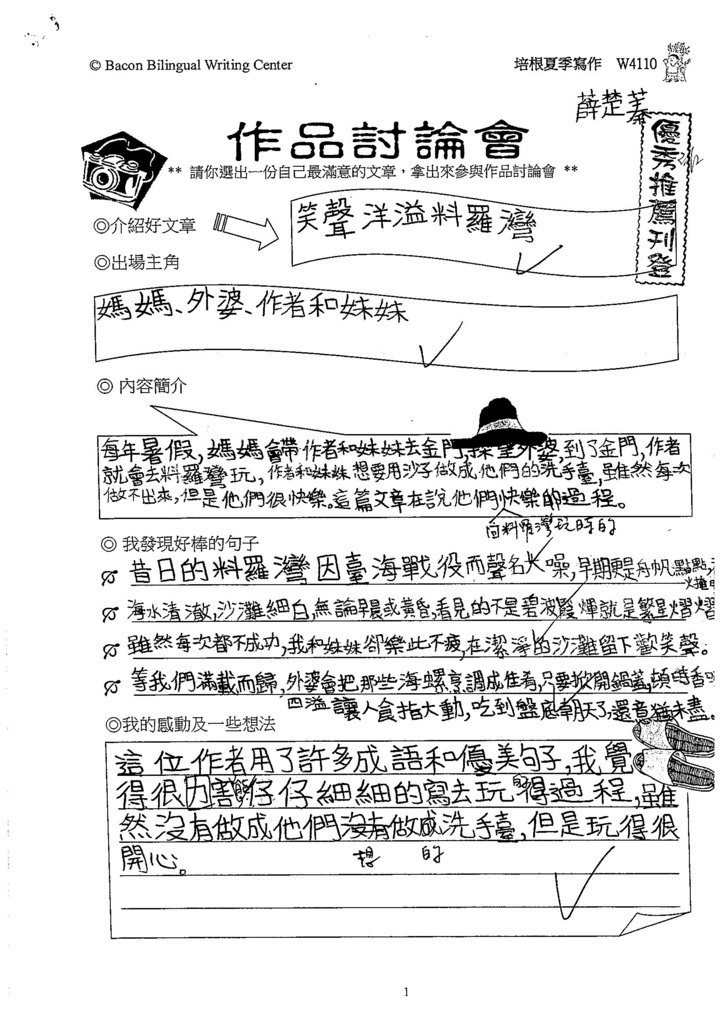 © Bacon Bilingual Writing Center 培根夏季寫作 W4110
薛楚蓁
作品討論會
優秀推薦刊登
** 請你選出一份自己最滿意的文章，拿出來參與作品討論會 **
◎介紹好文章
笑聲洋溢料羅灣
◎出場主角
媽媽、外婆、作者和妹妹
◎ 內容簡介
每年暑假，媽媽會帶作者和妹妹去金門，探望外婆，到了金門，作者
就會去料羅灣玩，作者和妹妹想要用沙子做成他們的洗手臺，雖然每次
做不出來，但是他們很快樂。這篇文章在說他們快樂的過程。
玩時的
◎ 我發現好棒的句子
昔日的料羅灣，因臺海戰役而聲名大噪，早期更是舟帆點點，
海水清澈，沙灘細白，無論早晨或黃昏，看見的不是碧波霞輝就是繁星熠熠
雖然每次都不成功，我和妹妹卻樂此不疲，在潔淨的沙灘留下歡笑聲。
等我們滿載而歸，外婆會把那些海螺烹調成佳肴，只要掀開鍋蓋，頓時香味
四溢讓人食指大動，吃到盤底朝天了，還意猶未盡。
◎我的感動及一些想法
這位作者用了許多成語和優美句子，我覺
得很厲害，仔仔細細的寫去玩得過程，雖
然沒有做成他們沒有做成洗手臺，但是玩得很
想 的
開心。
1